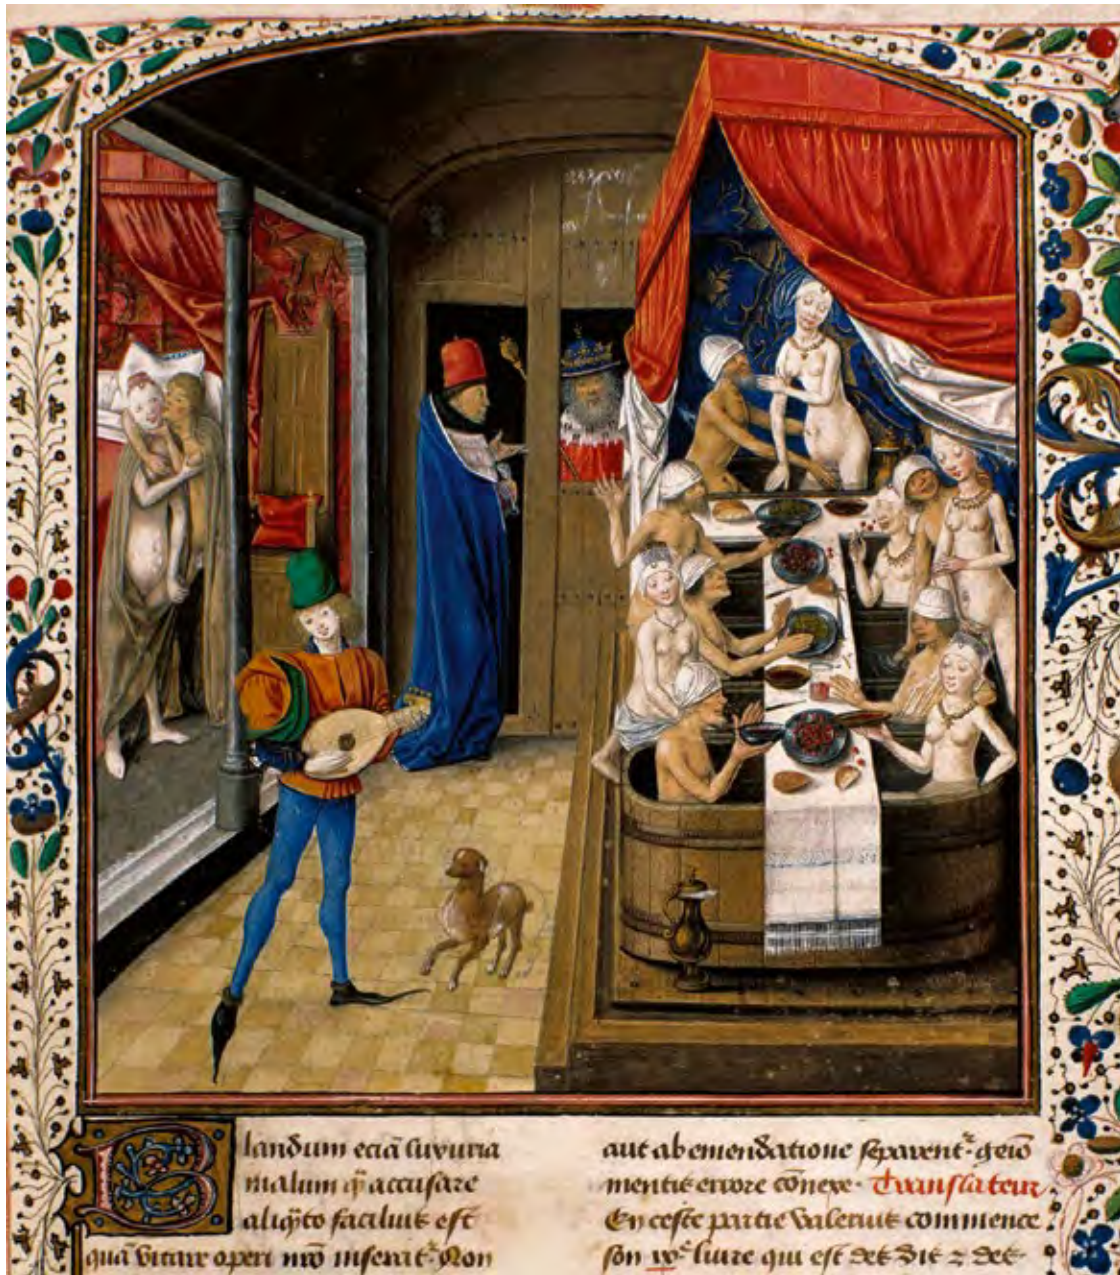 Blandum eciā luxuria
malum q̄ accusare
aliq̄to facilius est
quā vitare operi nrō inserat᷑ Non
aut ab emendatione separent᷑ geīo
mentis errore cōnexe· Translateur
En ceste partie valerius commence
son ixᵉ liure qui est des dit ꝛ des